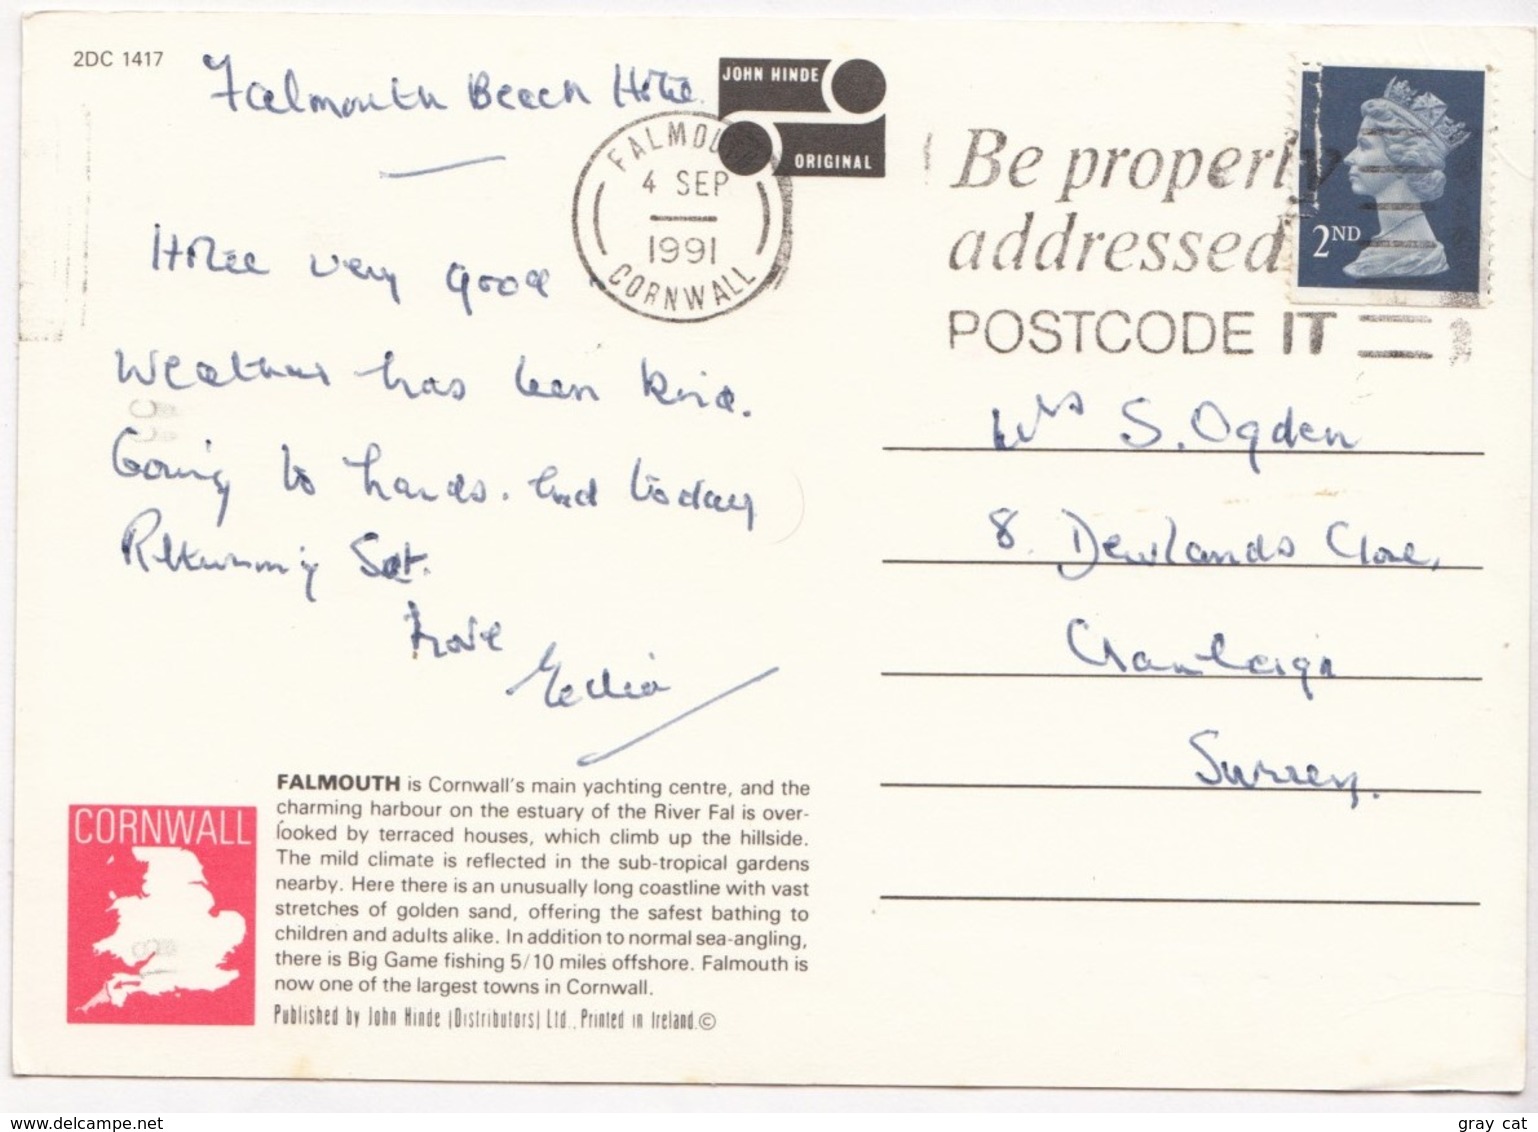 2DC 1417
Falmouth Beach Hotel.
JOHN HINDE
ORIGINAL
FALMOUTH
4 SEP
1991
CORNWALL
Be properly
addressed
POSTCODE IT
2ND
Hotel very good.
Weather has been kind.
Going to Lands. End today
Returning Sat.
Love
Mrs S. Ogden
8. Dewlands Close,
Cranleigh
Surrey.
CORNWALL
FALMOUTH is Cornwall's main yachting centre, and the
charming harbour on the estuary of the River Fal is over-
looked by terraced houses, which climb up the hillside.
The mild climate is reflected in the sub-tropical gardens
nearby. Here there is an unusually long coastline with vast
stretches of golden sand, offering the safest bathing to
children and adults alike. In addition to normal sea-angling,
there is Big Game fishing 5/10 miles offshore. Falmouth is
now one of the largest towns in Cornwall.
Published by John Hinde (Distributors) Ltd., Printed in Ireland.©
www.delcampe.net
gray cat